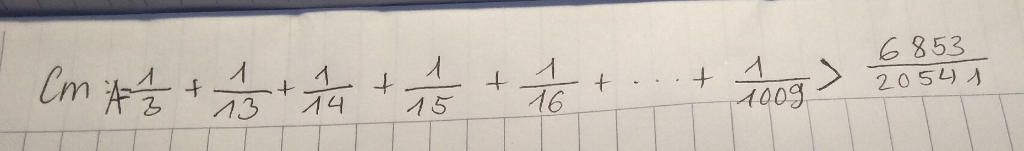 Cm : A = 1/3 + 1/13 + 1/14 + 1/15 + 1/16 + ... + 1/1009 > 6853/20541